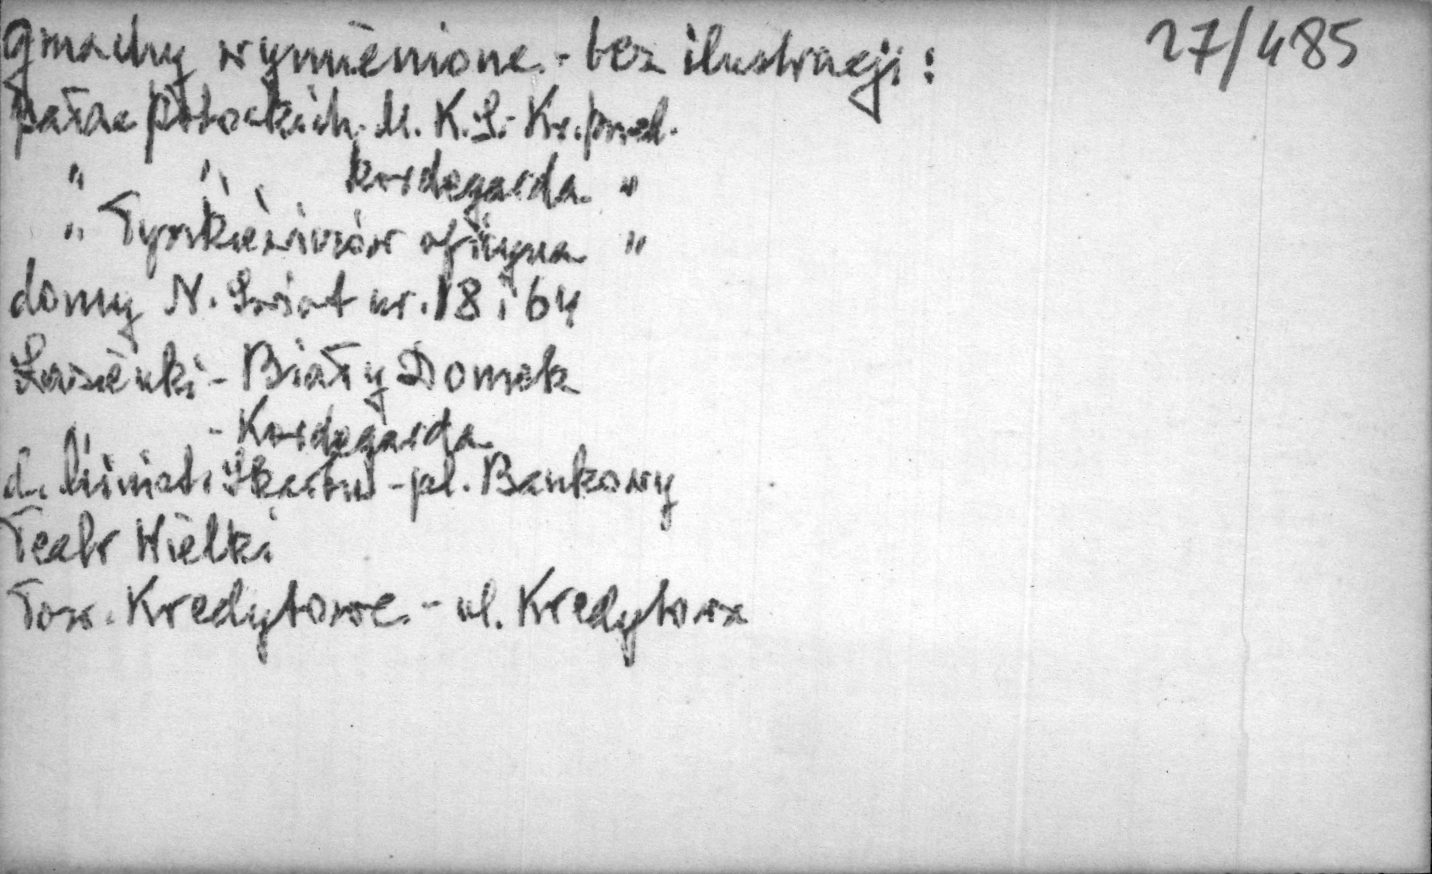 27/485
gmachy wymienione - bez ilustracji:
pałac Potockich M. K. S. Kr. przed.
" " kordegarda "
" Tyszkiewiczów oficyna "
domy N. Świat nr. 18 i 64
Łazienki - Biały Domek
- Kordegarda
d. Minist. Skarbu - pl. Bankowy
Teatr Wielki
Tow. Kredytowe - ul. Kredytowa